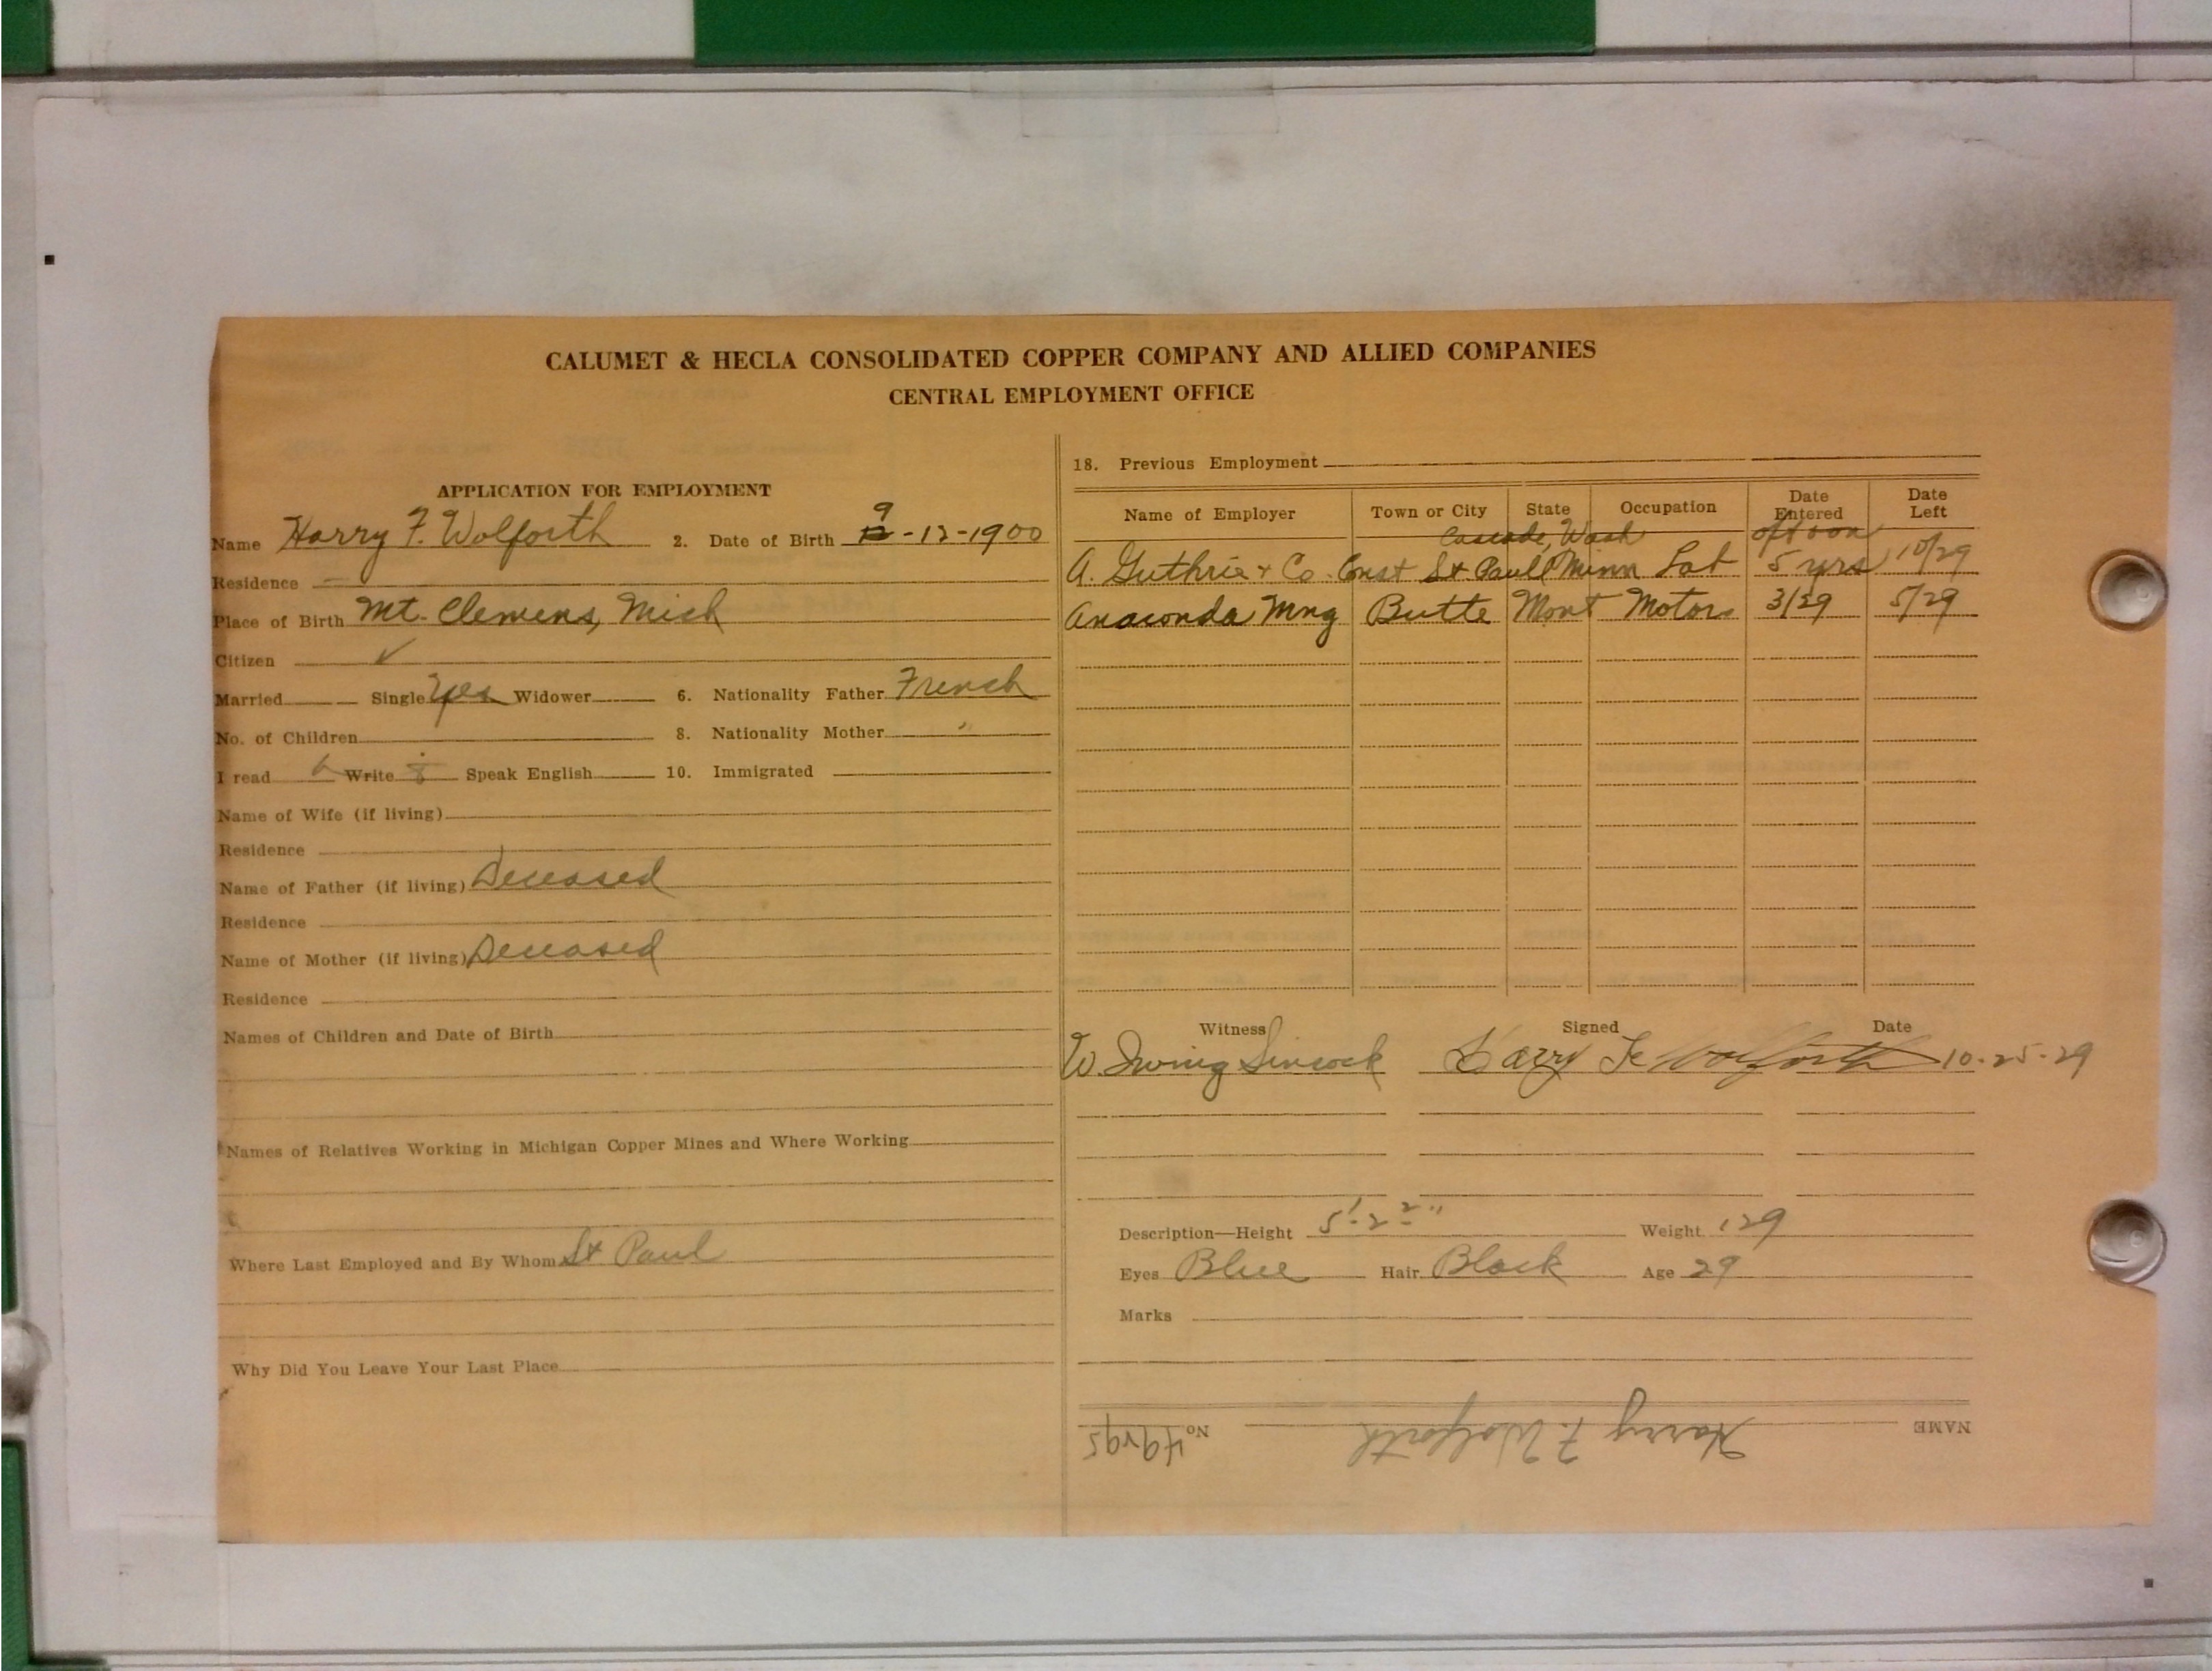 CALUMET & HECLA CONSOLIDATED COPPER COMPANY AND ALLIED COMPANIES
CENTRAL EMPLOYMENT OFFICE
APPLICATION FOR EMPLOYMENT
Name Harry F. Wolforth 2. Date of Birth 9-12-1900
Residence
Place of Birth Mt. Clemens, Mich
Citizen ✓
Married Single Yes Widower 6. Nationality Father French
No. of Children 8. Nationality Mother "
I read Write Speak English 10. Immigrated
Name of Wife (if living)
Residence
Name of Father (if living) Deceased
Residence
Name of Mother (if living) Deceased
Residence
Names of Children and Date of Birth
Names of Relatives Working in Michigan Copper Mines and Where Working
Where Last Employed and By Whom St Paul
Why Did You Leave Your Last Place
18. Previous Employment
Name of Employer Town or City State Occupation Date Entered Date Left
Cascade, Wash off & on
A. Guthrie + Co. Const St Paul Minn Lab 5 yrs 10/29
Anaconda Mng Butte Mont Motors 3/29 5/29
Witness Signed Date
W. Irving Sincock Harry F Wolforth 10-25-29
Description—Height 5'-2 Weight 129
Eyes Blue Hair Black Age 29
Marks
NAME Harry F. Wolforth No. 49295